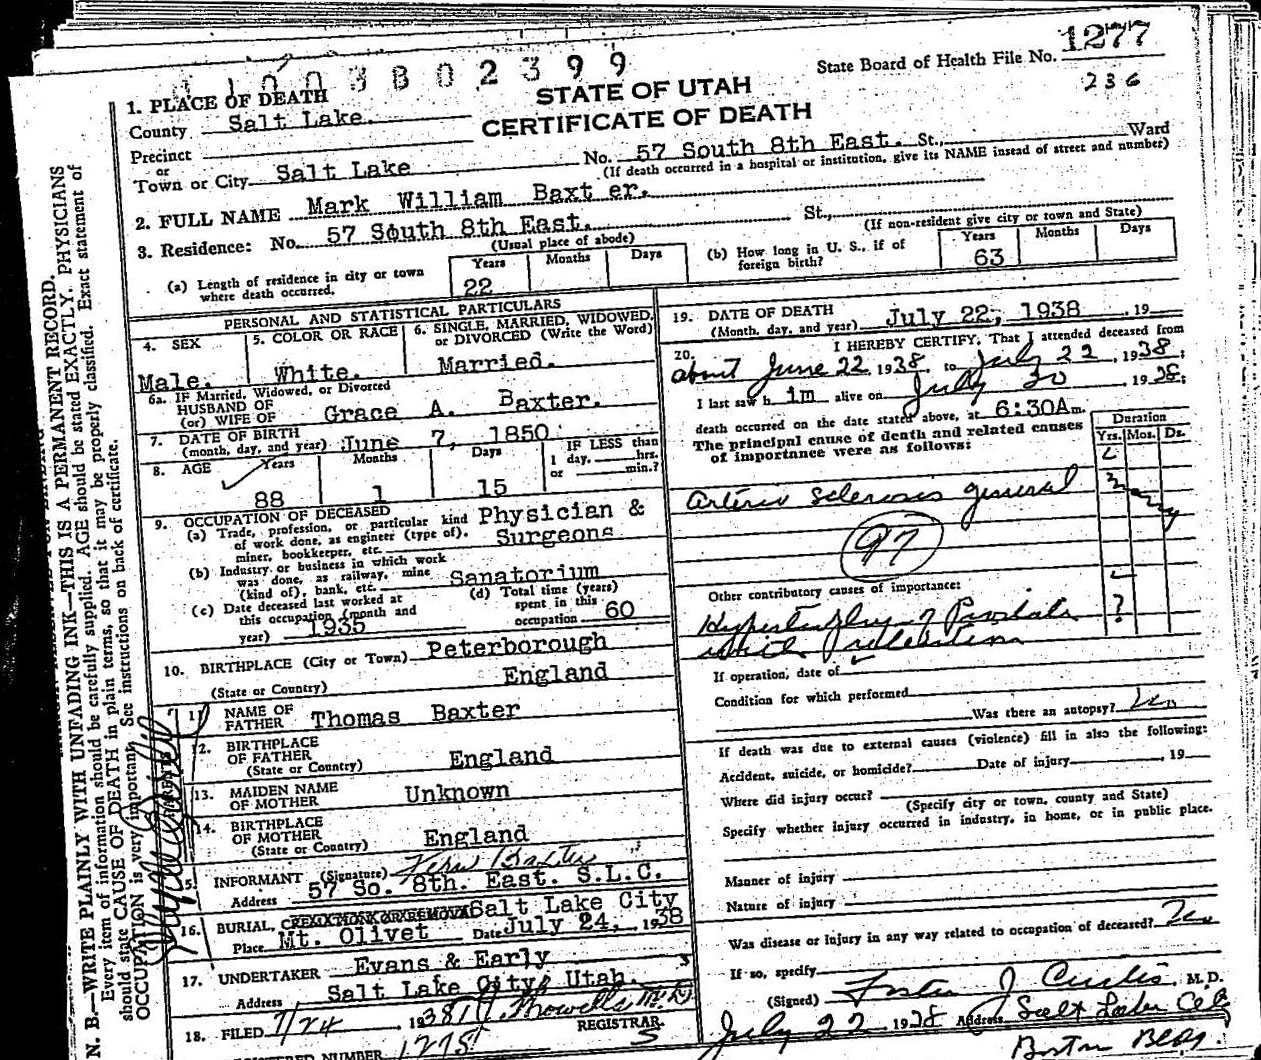 1277
State Board of Health File No.
236
STATE OF UTAH
CERTIFICATE OF DEATH
1. PLACE OF DEATH
County Salt Lake.
Precinct
or
Town or City Salt Lake
No. 57 South 8th East. St., Ward
(If death occurred in a hospital or institution, give its NAME instead of street and number)
2. FULL NAME Mark William Baxt er.
3. Residence: No. 57 South 8th East. St.,
(Usual place of abode)
(If non-resident give city or town and State)
(a) Length of residence in city or town where death occurred.
Years Months Days
22
(b) How long in U. S., if of foreign birth?
Years Months Days
63
PERSONAL AND STATISTICAL PARTICULARS
4. SEX
Male.
5. COLOR OR RACE
White.
6. SINGLE, MARRIED, WIDOWED, or DIVORCED (Write the Word)
Married.
6a. IF Married, Widowed, or Divorced
HUSBAND OF
(or) WIFE OF Grace A. Baxter.
7. DATE OF BIRTH
(month, day, and year) June 7, 1850
8. AGE Years Months Days
88 1 15
IF LESS than
1 day, hrs.
or min.?
9. OCCUPATION OF DECEASED
(a) Trade, profession, or particular kind of work done, as engineer (type of). miner, bookkeeper, etc.
Physician &
Surgeons
(b) Industry or business in which work was done, as railway, mine (kind of), bank, etc. Sanatorium
(c) Date deceased last worked at this occupation (month and year) 1935
(d) Total time (years) spent in this occupation 60
10. BIRTHPLACE (City or Town) Peterborough
(State or Country) England
11. NAME OF FATHER Thomas Baxter
12. BIRTHPLACE OF FATHER
(State or Country) England
13. MAIDEN NAME OF MOTHER Unknown
14. BIRTHPLACE OF MOTHER
(State or Country) England
15. INFORMANT (Signature) Baxter
Address 57 So. 8th. East. S.L.C.
16. BURIAL, Salt Lake City
Place Mt. Olivet Date July 24, 1938
17. UNDERTAKER Evans & Early
Address Salt Lake City, Utah.
18. FILED 7/24 1938
REGISTRAR.
REGISTERED NUMBER 1275
19. DATE OF DEATH
(Month, day, and year) July 22, 1938 , 19
20. I HEREBY CERTIFY, That I attended deceased from
about June 22, 1938 to July 22, 1938;
I last saw h im alive on July 20 1938;
death occurred on the date stated above, at 6:30A m.
The principal cause of death and related causes of importance were as follows:
Duration
Yrs. Mos. Ds.
Arterio sclerosis general
many
97
Other contributory causes of importance:
Hypertrophy of Prostate
with retention
?
If operation, date of
Condition for which performed
Was there an autopsy? no
If death was due to external causes (violence) fill in also the following:
Accident, suicide, or homicide? Date of injury , 19
Where did injury occur?
(Specify city or town, county and State)
Specify whether injury occurred in industry, in home, or in public place.
Manner of injury
Nature of injury
Was disease or Injury in any way related to occupation of deceased? no
If so, specify
(Signed) Foster J Curtis M. D.
July 22, 1938 Address Salt Lake City
Boston Bldg.
N. B.—WRITE PLAINLY WITH UNFADING INK—THIS IS A PERMANENT RECORD.
Every item of information should be carefully supplied. AGE should be stated EXACTLY. PHYSICIANS
should state CAUSE OF DEATH in plain terms, so that it may be properly classified. Exact statement of
OCCUPATION is very important. See instructions on back of certificate.